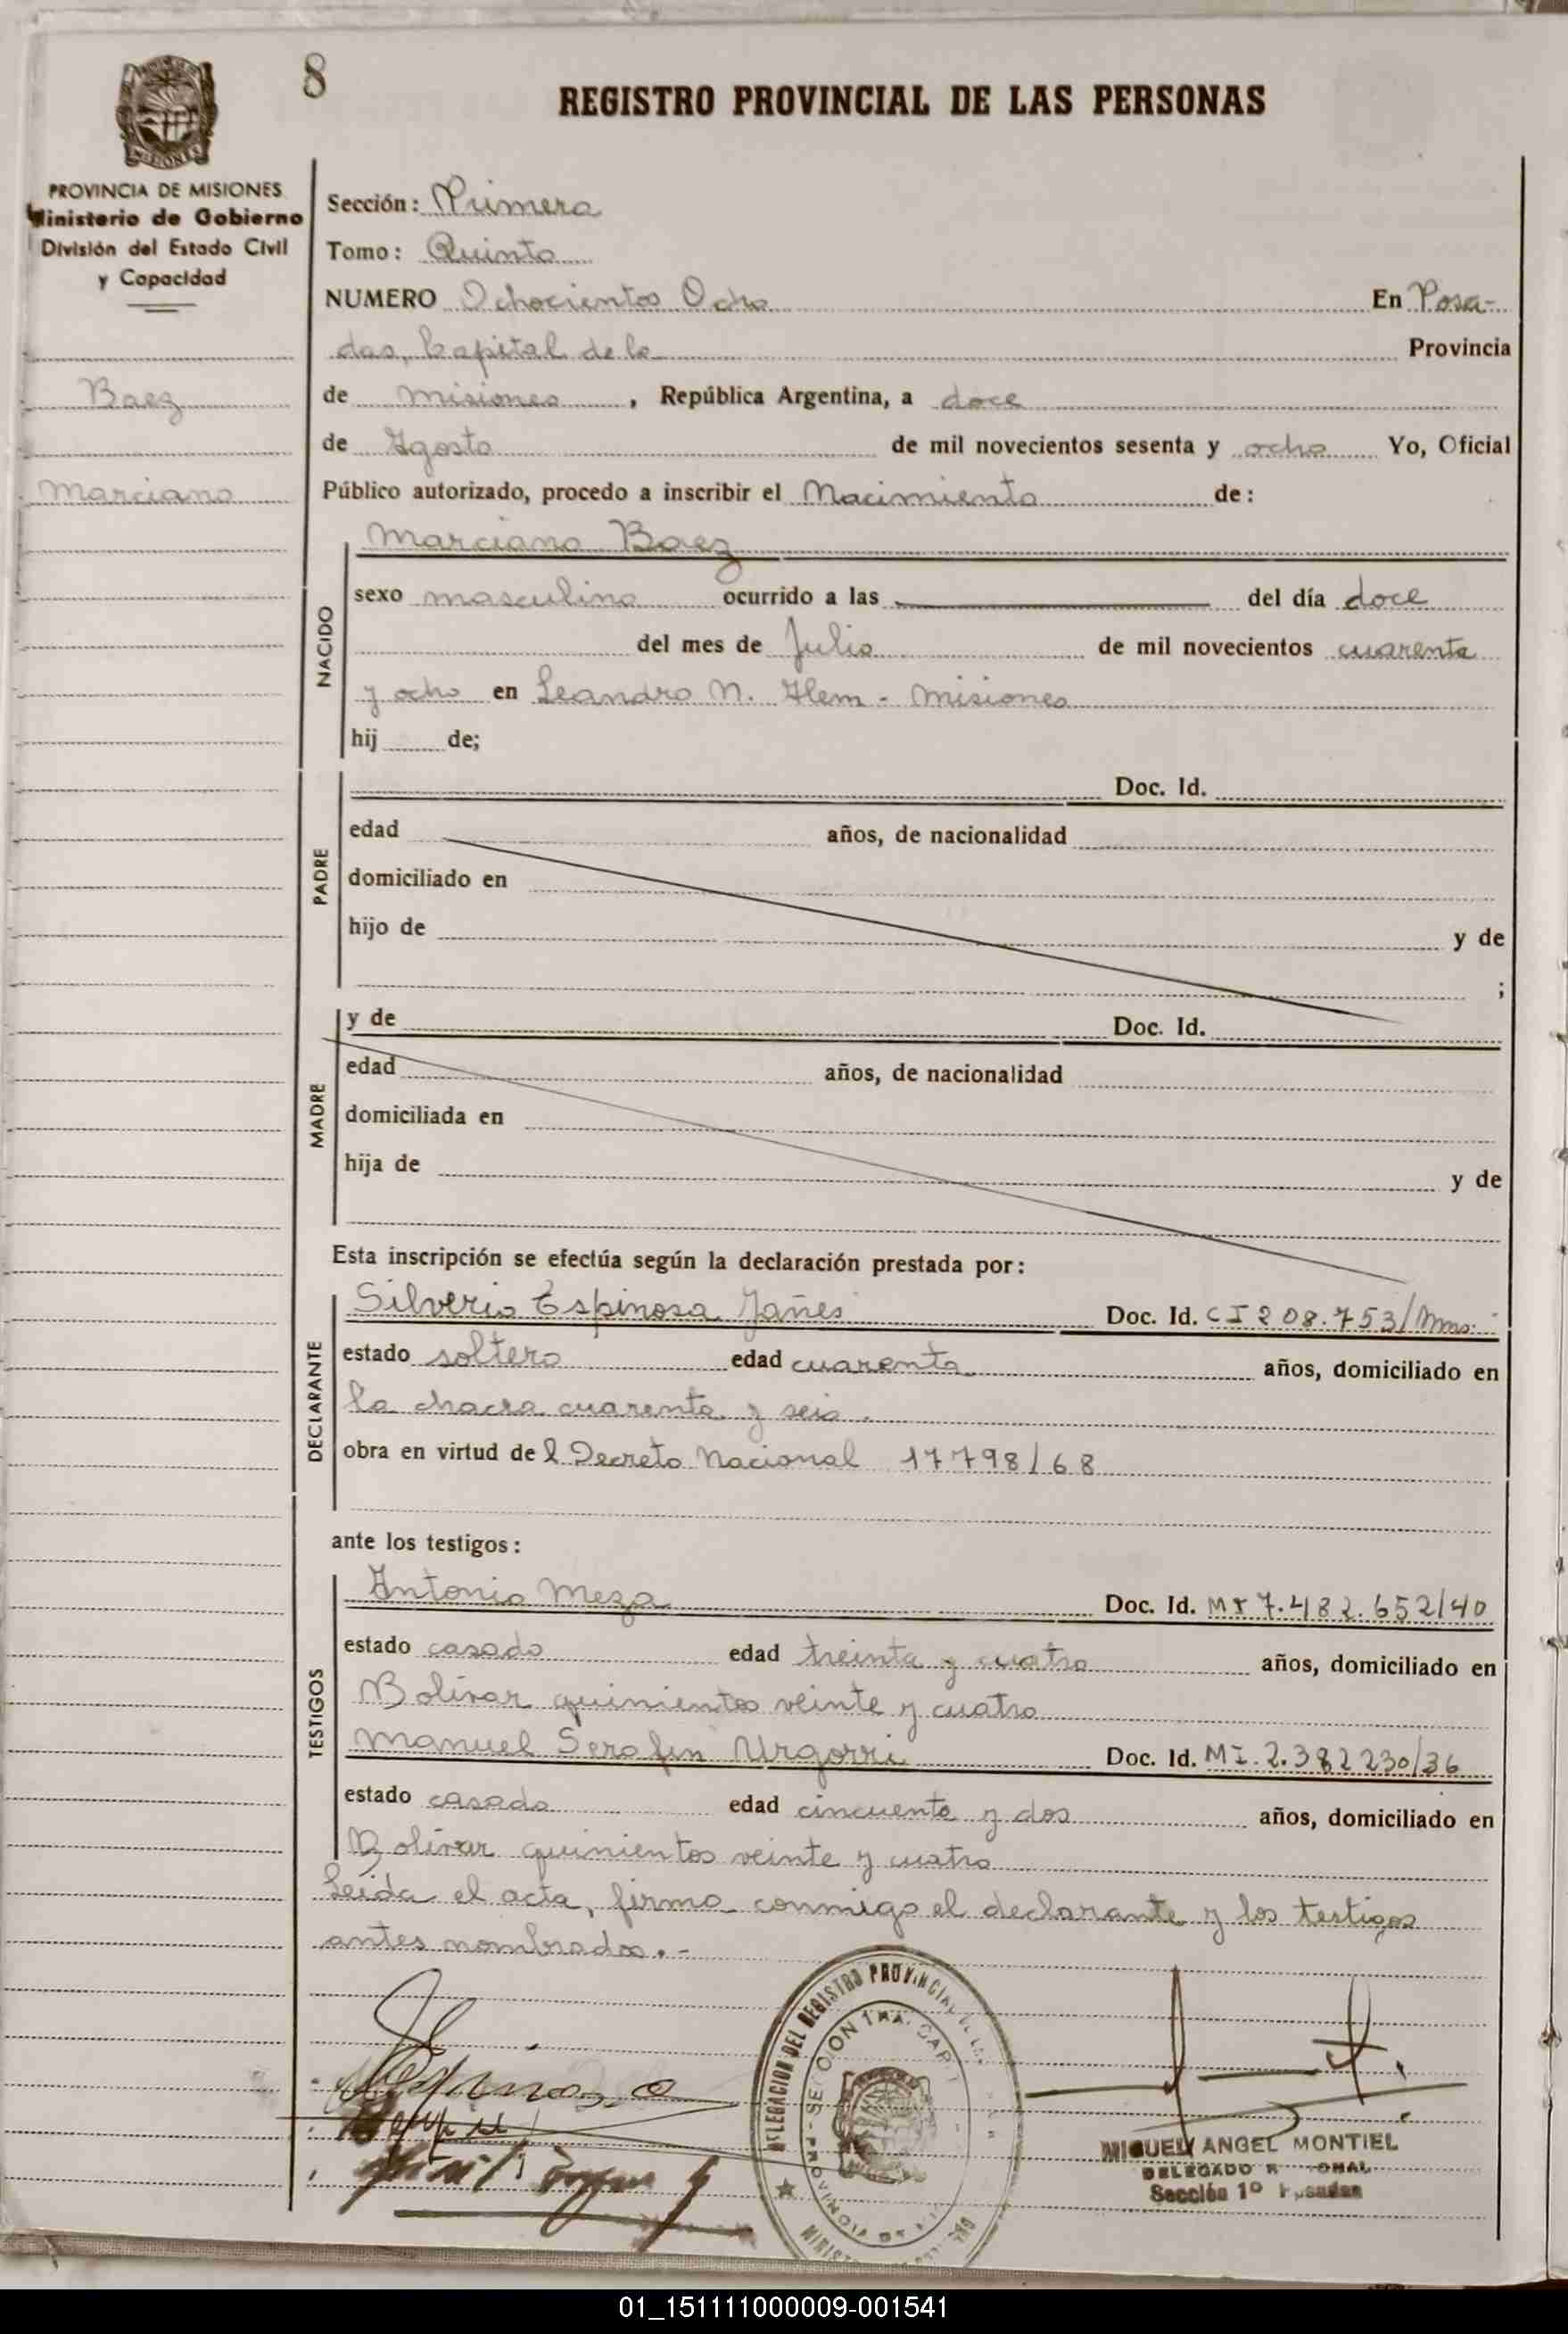 8
REGISTRO PROVINCIAL DE LAS PERSONAS
MISIONES
PROVINCIA DE MISIONES
Ministerio de Gobierno
División del Estado Civil
y Capacidad
Baez
Marciano
Sección: Primera
Tomo: Quinto
NUMERO Ochocientos Ocho En Posa-
das, Capital de la Provincia
de Misiones, República Argentina, a doce
de Agosto de mil novecientos sesenta y ocho Yo, Oficial
Público autorizado, procedo a inscribir el Nacimiento de:
NACIDO
Marciano Baez
sexo masculino ocurrido a las del día doce
del mes de Julio de mil novecientos cuarenta
y ocho en Leandro N. Alem - Misiones
hij de;
PADRE
Doc. Id.
edad años, de nacionalidad
domiciliado en
hijo de y de
;
MADRE
y de Doc. Id.
edad años, de nacionalidad
domiciliada en
hija de y de
Esta inscripción se efectúa según la declaración prestada por:
DECLARANTE
Silverio Espinosa Yañes Doc. Id. CI 208.753/Mnes.
estado soltero edad cuarenta años, domiciliado en
la chacra cuarenta y seis.
obra en virtud del Decreto Nacional 17798/68
ante los testigos:
TESTIGOS
Antonio Meza Doc. Id. MI 7.482.652/40
estado casado edad treinta y cuatro años, domiciliado en
Bolivar quinientos veinte y cuatro
Manuel Serafin Urgorri Doc. Id. MI. 2.382230/36
estado casado edad cincuenta y dos años, domiciliado en
Bolivar quinientos veinte y cuatro
Leida el acta, firma conmigo el declarante y los testigos
antes nombrados.-
DELEGACION DEL REGISTRO PROVINCIAL
SECCION 1RA. CAP
PROVINCIA DE
MIGUEL ANGEL MONTIEL
DELEGADO
Sección 1º Posadas
01_151111000009-001541